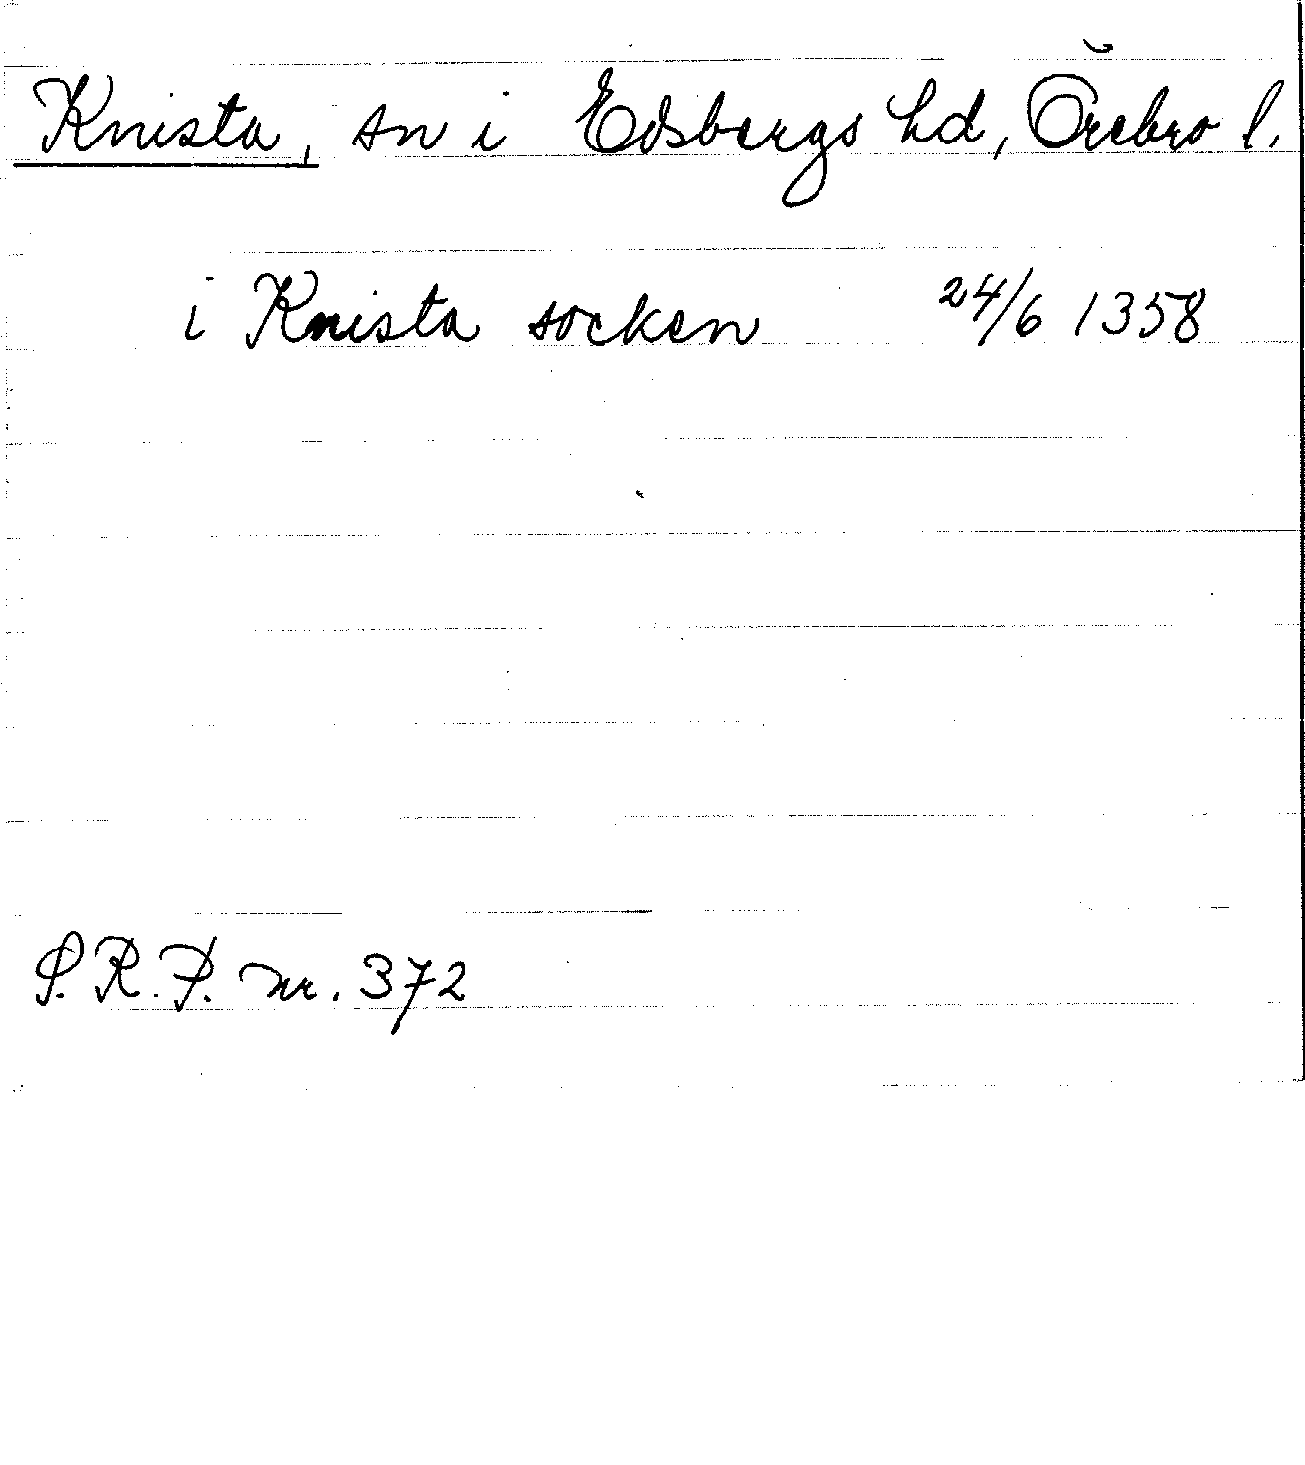 Knista, sn i Edsbergs hd, Örebro l.
i Knista socken 24/6 1358
S.R.P. nr. 372